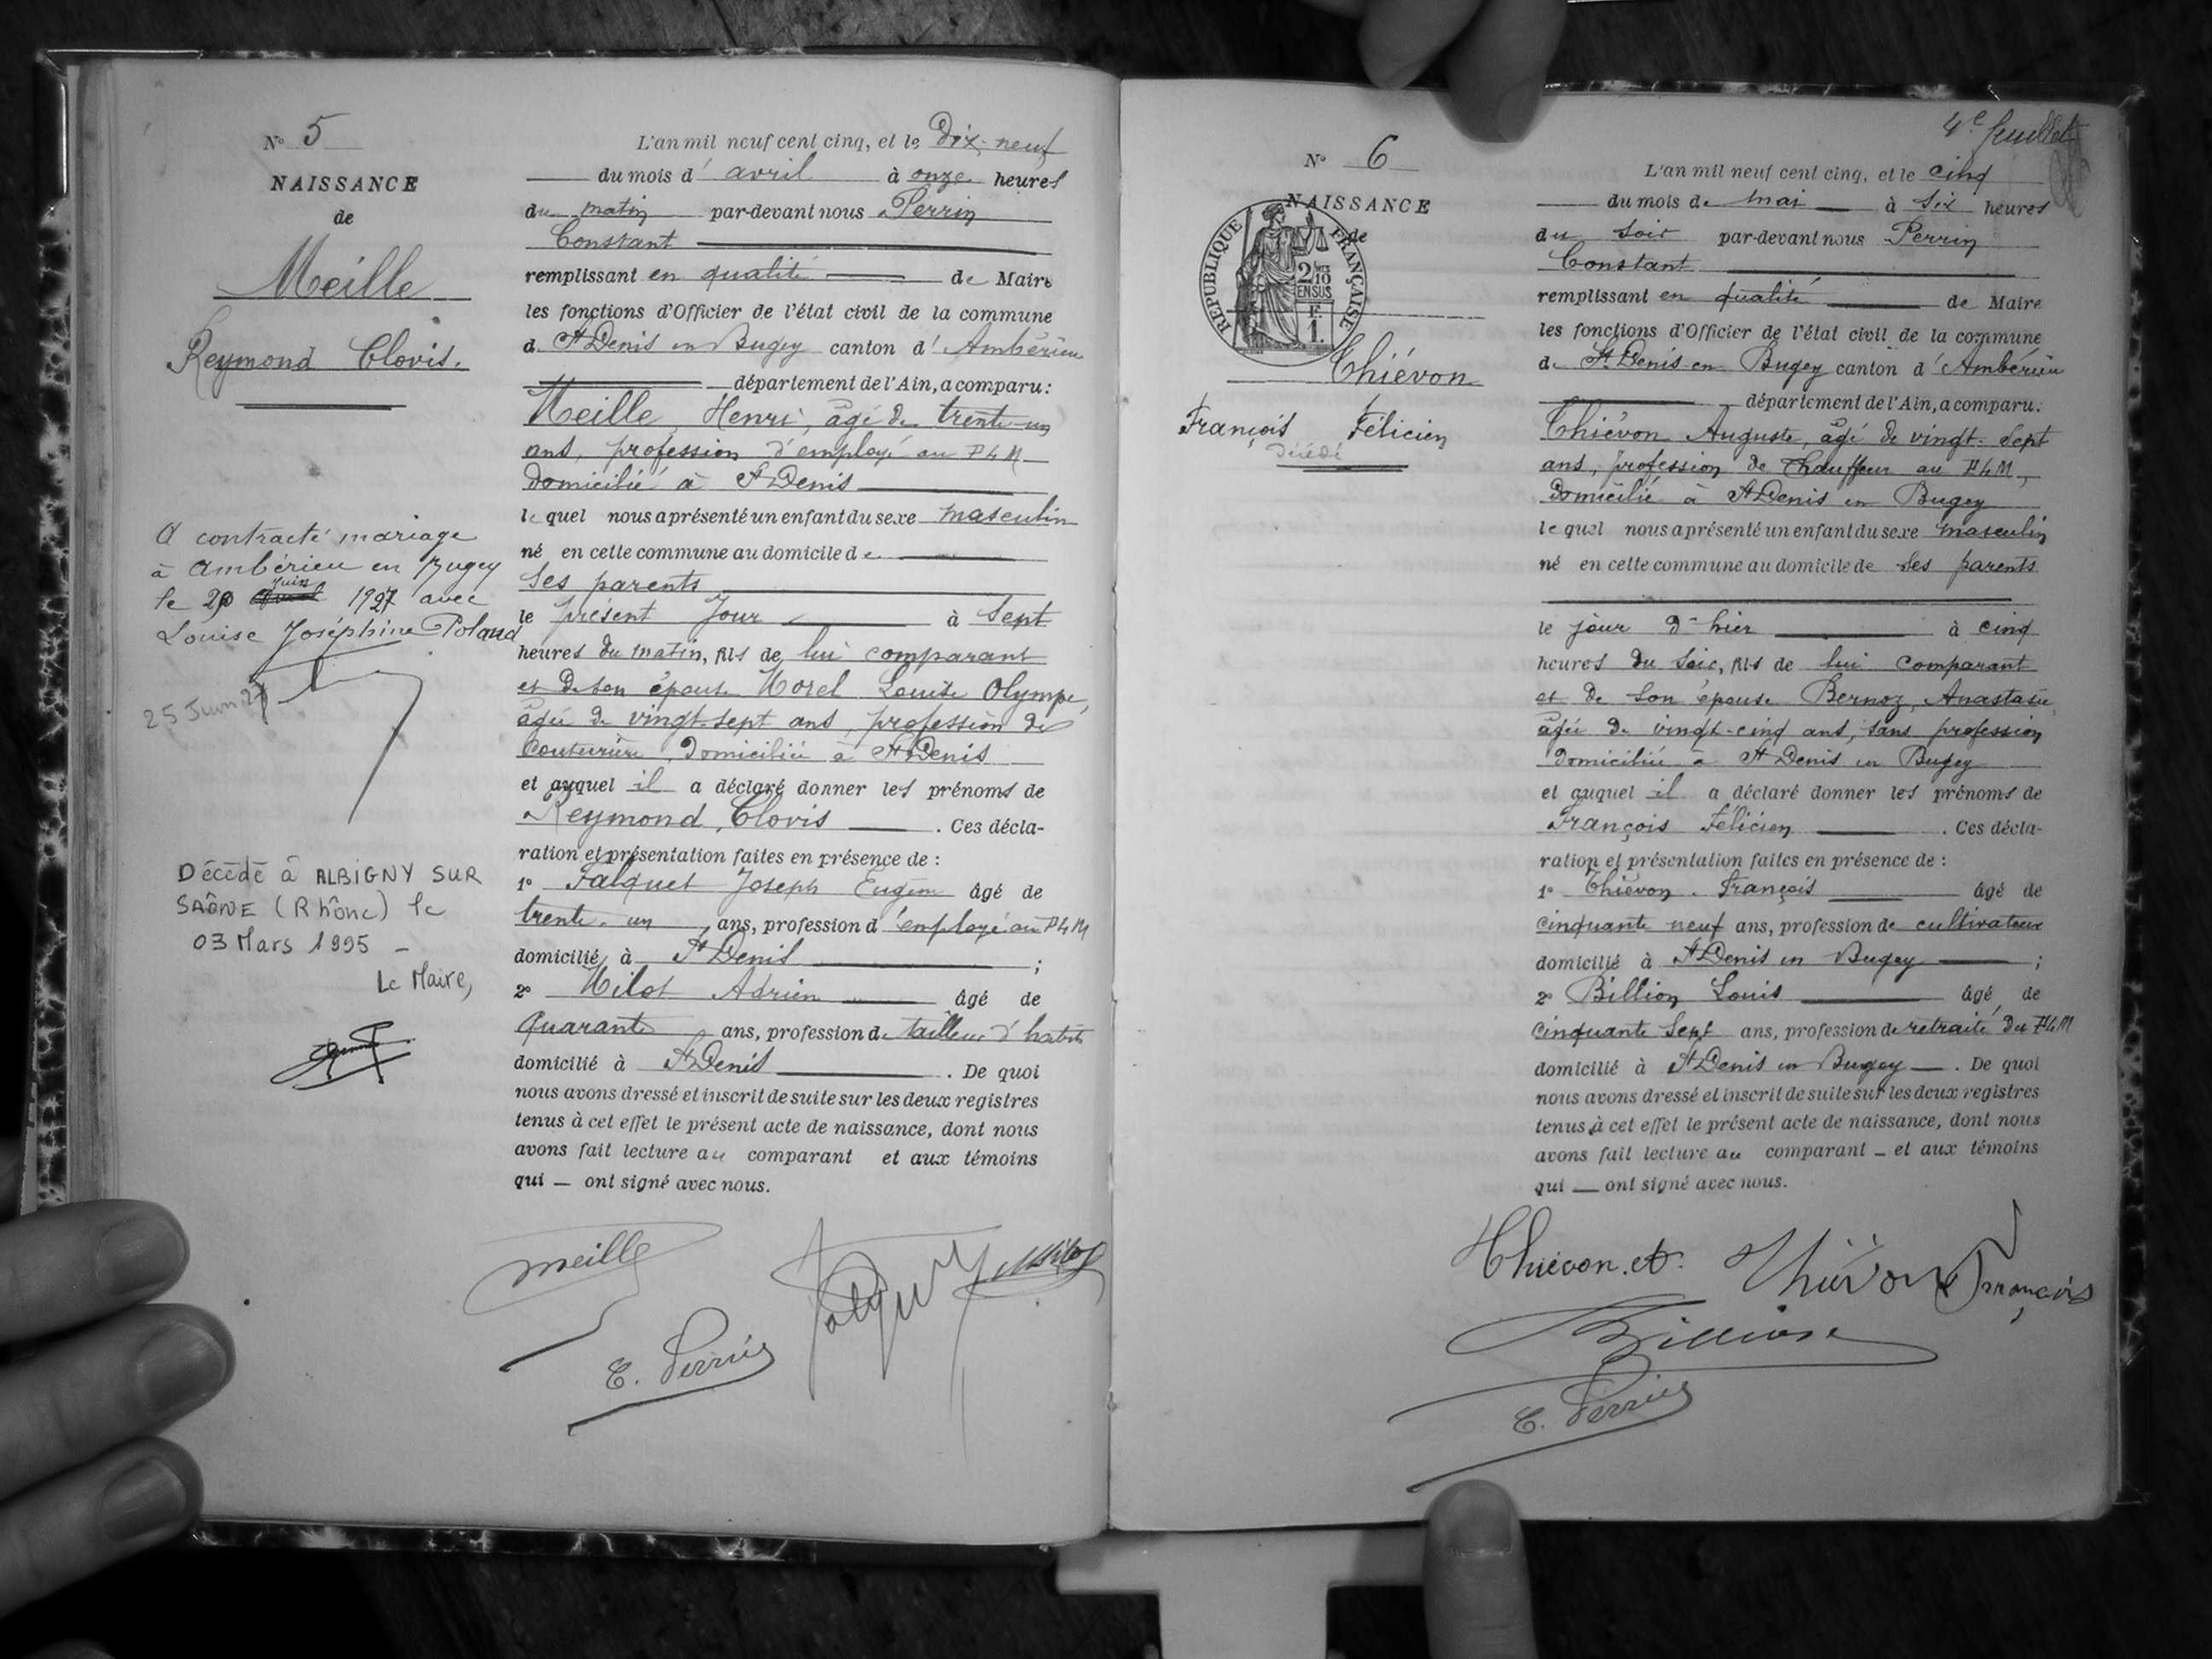 N° 5
NAISSANCE
de
Meille
Reymond Clovis.
A contracté mariage
à Ambérieu en Bugey
le 20 juin 1927 avec
Louise Joséphine Poland
25 Juin 27
Décédé à ALBIGNY SUR
SAÔNE (Rhône) le
03 Mars 1995 -
Le Maire,
L'an mil neuf cent cinq, et le Dix-neuf
du mois d'avril à onze heures
du matin par-devant nous Perrin
Constant
remplissant en qualité de Maire
les fonctions d'Officier de l'état civil de la commune
de St Denis en Bugey canton d'Ambérieu
département de l'Ain, a comparu:
Meille, Henri, âgé de trente-un
ans, profession d'employé au PLM
domicilié à St Denis
lequel nous a présenté un enfant du sexe masculin
né en cette commune au domicile de
ses parents
le présent jour à sept
heures du matin, fils de lui comparant
et de son épouse Morel Louise Olympe,
âgée de vingt-sept ans, profession de
couturière, domiciliée à St Denis
et auquel il a déclaré donner les prénoms de
Reymond, Clovis . Ces décla-
ration et présentation faites en présence de :
1° Falquet Joseph Eugène âgé de
trente-un ans, profession d'employé au PLM
domicilié à St Denis ;
2° Milot Adrien âgé de
quarante ans, profession de tailleur d'habits
domicilié à St Denis . De quoi
nous avons dressé et inscrit de suite sur les deux registres
tenus à cet effet le présent acte de naissance, dont nous
avons fait lecture au comparant et aux témoins
qui — ont signé avec nous.
Meille Falquet Milot
C. Perrin
4e feuillet
N° 6
NAISSANCE
de
REPUBLIQUE FRANÇAISE
2/10
EN SUS
F.
1.
Thiévon
François Félicien
Décédé
L'an mil neuf cent cinq, et le cinq
du mois de mai à six heures
du soir par-devant nous Perrin
Constant
remplissant en qualité de Maire
les fonctions d'Officier de l'état civil de la commune
de St Denis-en Bugey canton d'Ambérieu
département de l'Ain, a comparu:
Thiévon Auguste, âgé de vingt-sept
ans, profession de Chauffeur au PLM,
domicilié à St Denis en Bugey
lequel nous a présenté un enfant du sexe masculin
né en cette commune au domicile de ses parents
le jour d'hier à cinq
heures du soir, fils de lui comparant
et de son épouse Bernoz, Anastasie,
âgée de vingt-cinq ans, sans profession
domiciliée à St Denis en Bugey
et auquel il a déclaré donner les prénoms de
François Félicien . Ces décla-
ration et présentation faites en présence de :
1° Thiévon François âgé de
cinquante neuf ans, profession de cultivateur
domicilié à St Denis en Bugey ;
2° Billion Louis âgé de
cinquante sept ans, profession de retraité du PLM
domicilié à St Denis en Bugey — . De quoi
nous avons dressé et inscrit de suite sur les deux registres
tenus à cet effet le présent acte de naissance, dont nous
avons fait lecture au comparant — et aux témoins
qui — ont signé avec nous.
Thiévon. Thiévon François
Billion
C. Perrin